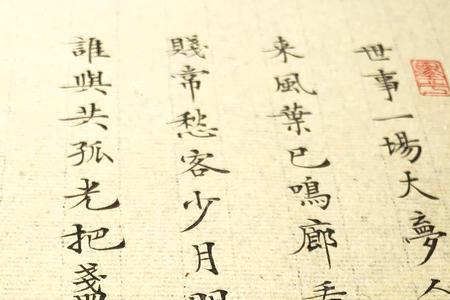 世事一場大夢人
来風葉已鳴廊
賤常愁客少月明
誰與共孤光把盞